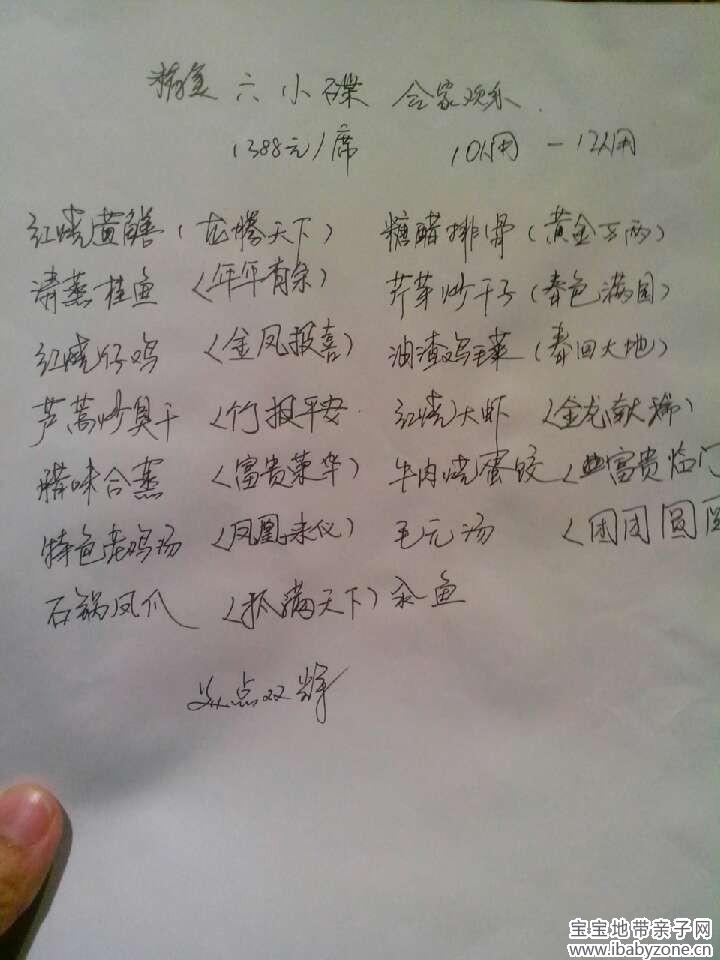 精美六小碟 合家欢乐
1388元/席 10人用-12人用
红烧黄鳝(龙腾天下) 糖醋排骨(黄金万两)
清蒸桂鱼(年年有余) 芹芽炒干子(春色满园)
红烧仔鸡(金凤报喜) 油渣鸡毛菜(春回大地)
芦蒿炒臭干(竹报平安 红烧大虾(金龙献瑞)
腊味合蒸(富贵荣华) 牛肉烧蛋饺(富贵临门
特色老鸡汤(凤凰来仪) 毛元汤(团团圆圆
石锅凤爪(抓满天下) 汆鱼
美点双辉
宝宝地带亲子网
www.ibabyzone.cn